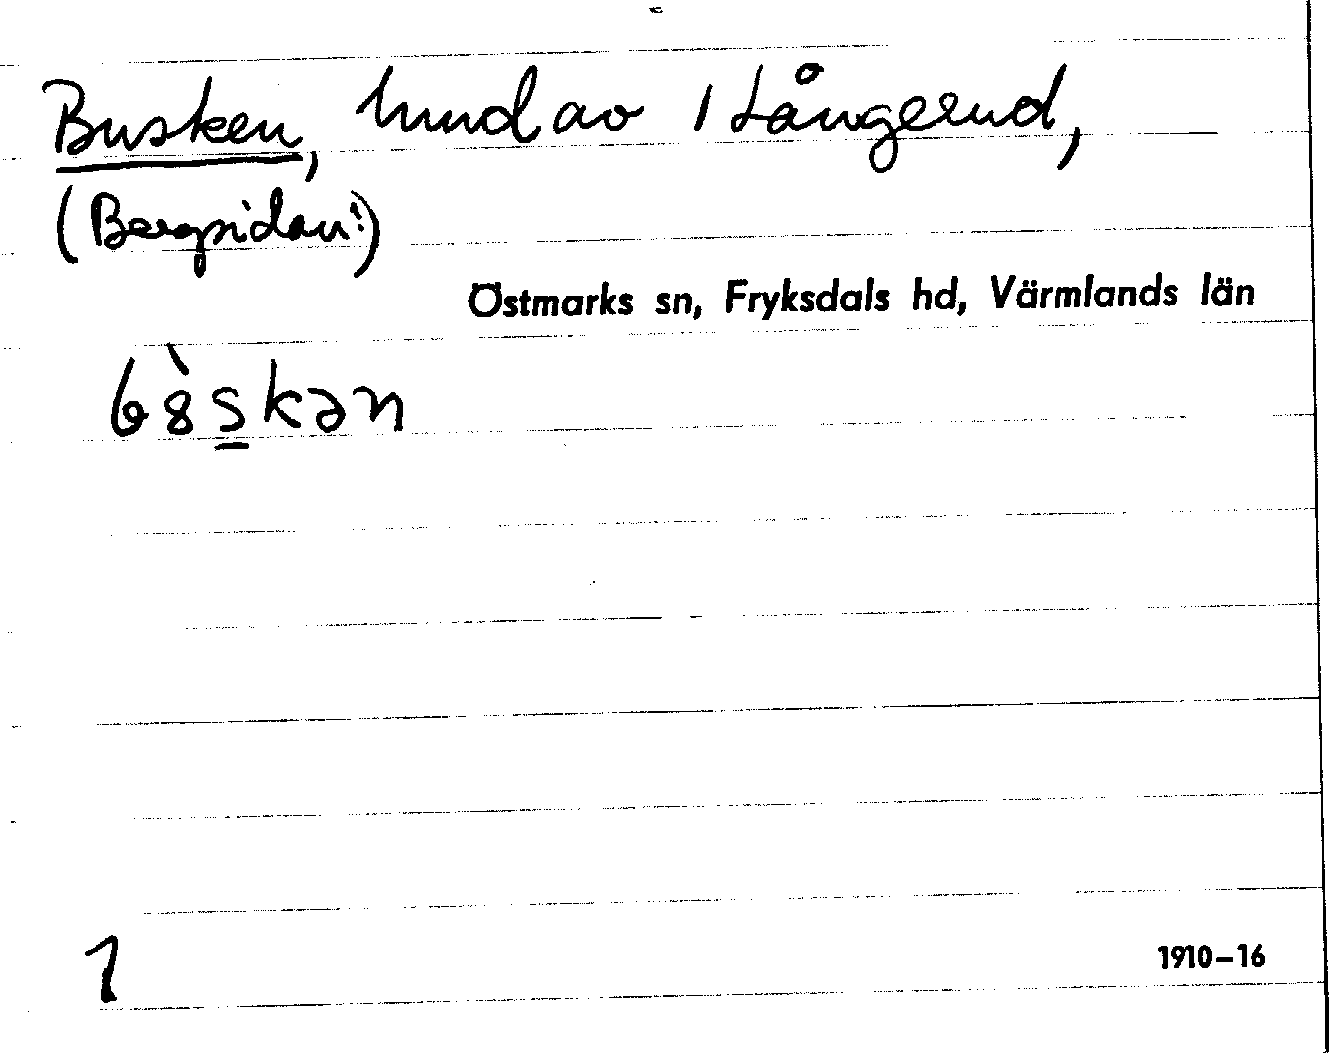 Busken, hmd av 1 Långerud,
(Bergsidan!)
Östmarks sn, Fryksdals hd, Värmlands län
b8̀s̲kən
1
1910–16